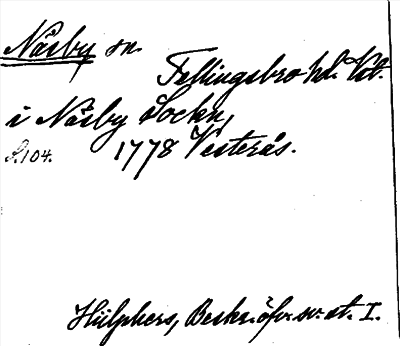 Näsby sn.
Fellingsbro hd. Vstl.
i Näsby Sockn,
S. 104. 1778 Vesterås.
Hülphers, Beskr. öfv. sv. st. I.